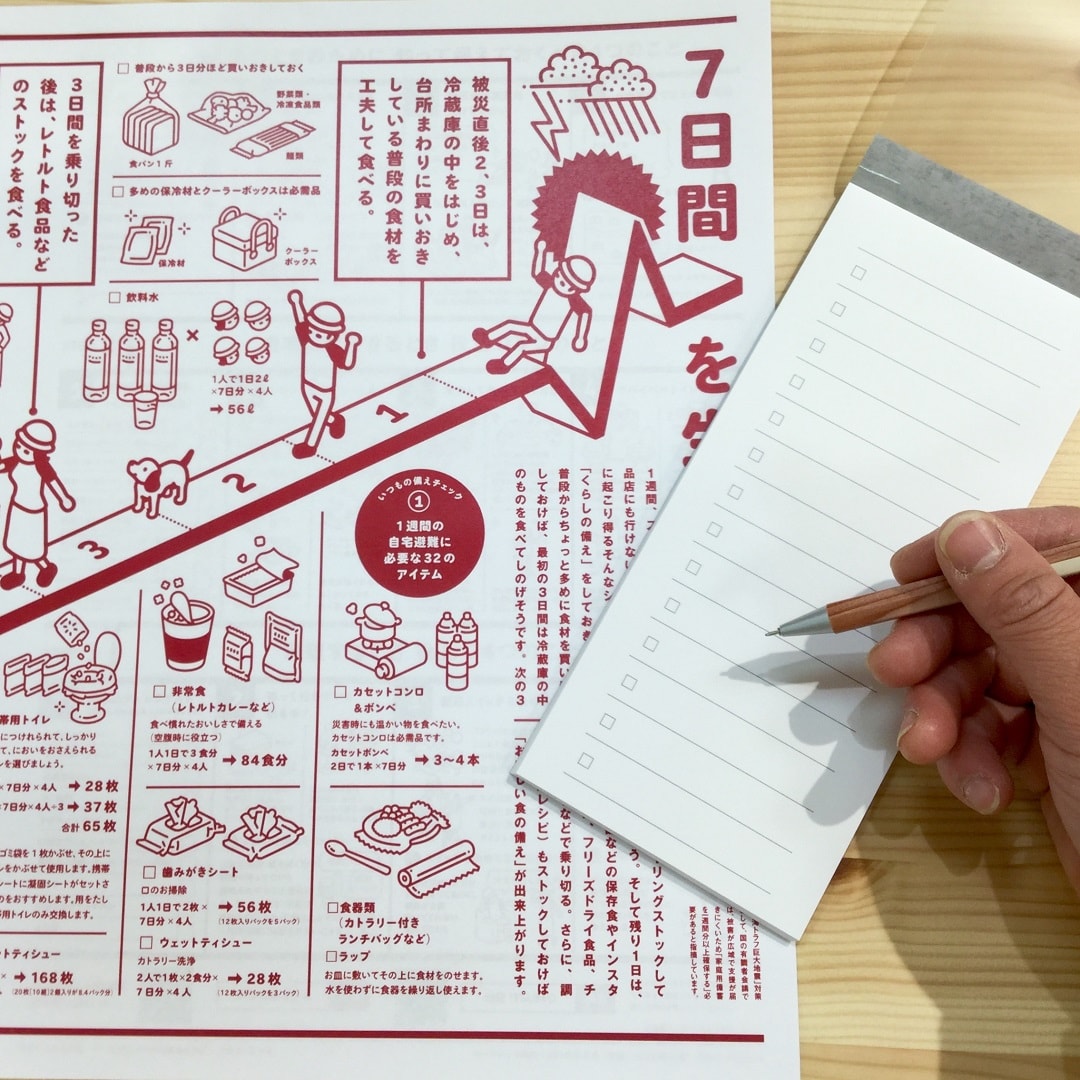 7日間を
被災直後2、3日は、
冷蔵庫の中をはじめ、
台所まわりに買いおき
している普段の食材を
工夫して食べる。
3日間を乗り切った
後は、レトルト食品など
のストックを食べる。
□ 普段から3日分ほど買いおきしておく
野菜類・
冷凍食品類
食パン1斤
麺類
□ 多めの保冷材とクーラーボックスは必需品
保冷材
クーラー
ボックス
□ 飲料水
×
1人で1日2ℓ
×7日分×4人
➔ 56ℓ
1
2
3
いつもの備えチェック
①
1週間の
自宅避難に
必要な32の
アイテム
1週間、
品店にも行けない
に起こり得るそんな
「くらしの備え」をしておき
普段からちょっと多めに食材を買い
しておけば、最初の3日間は冷蔵庫の中
のものを食べてしのげそうです。次の3
リングストックして
う。そして残り1日は、
などの保存食やインスタ
、フリーズドライ食品、チ
などで乗り切る。さらに、調
レシピ)もストックしておけば
しい食の備え」が出来上がります。
帯用トイレ
につけれられて、しっかり
て、においをおさえられる
を選びましょう。
×7日分×4人 ➔ 28枚
×7日分×4人÷3 ➔ 37枚
合計 65枚
ゴミ袋を1枚かぶせ、その上に
をかぶせて使用します。携帯
シートに凝固シートがセットさ
のをおすすめします。用をたし
帯用トイレのみ交換します。
トティシュー
× ➔ 168枚
□ 非常食
(レトルトカレーなど)
食べ慣れたおいしさで備える
(空腹時に役立つ)
1人1日で3食分
×7日分×4人 ➔ 84食分
□ カセットコンロ
&ボンベ
災害時にも温かい物を食べたい。
カセットコンロは必需品です。
カセットボンベ
2日で1本×7日分 ➔ 3〜4本
□ 歯みがきシート
口のお掃除
1人1日で2枚×
7日分×4人 ➔ 56枚
(12枚入りパックを5パック)
□ ウェットティシュー
カトラリー洗浄
2人で1枚×2食分×
7日分×4人 ➔ 28枚
(12枚入りパックを3パック)
□食器類
(カトラリー付き
ランチバッグなど)
□ラップ
お皿に敷いてその上に食材をのせます。
水を使わずに食器を繰り返し使えます。
海トラフ巨大地震」対策
して、国の有識者会議で
は、被害が広域で支援が届
きにくいため「家庭用備蓄
を1週間分以上確保する」必
要があると指摘しています。